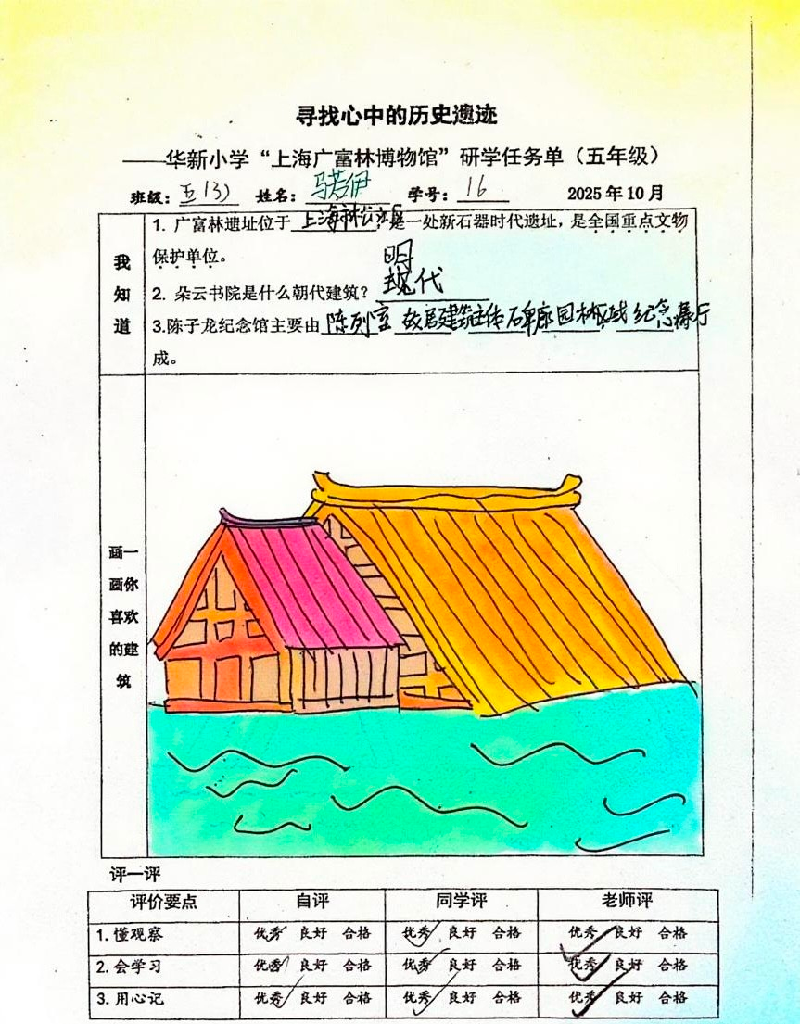 寻找心中的历史遗迹
——华新小学“上海广富林博物馆”研学任务单（五年级）
班级：五(3) 姓名：马芸伊 学号：16 2025年10月
我知道
1. 广富林遗址位于上海市松江区，是一处新石器时代遗址，是全国重点文物
保护单位。
明
2. 朵云书院是什么朝代建筑？代
3.陈子龙纪念馆主要由陈列室 故居建筑主体 碑廊 园林区域 纪念展厅
成。
画一
画你
喜欢
的建
筑
评一评
评价要点 自评 同学评 老师评
1. 懂观察 优秀 良好 合格 优秀 良好 合格 优秀 良好 合格
2. 会学习 优秀 良好 合格 优秀 良好 合格 优秀 良好 合格
3. 用心记 优秀 良好 合格 优秀 良好 合格 优秀 良好 合格